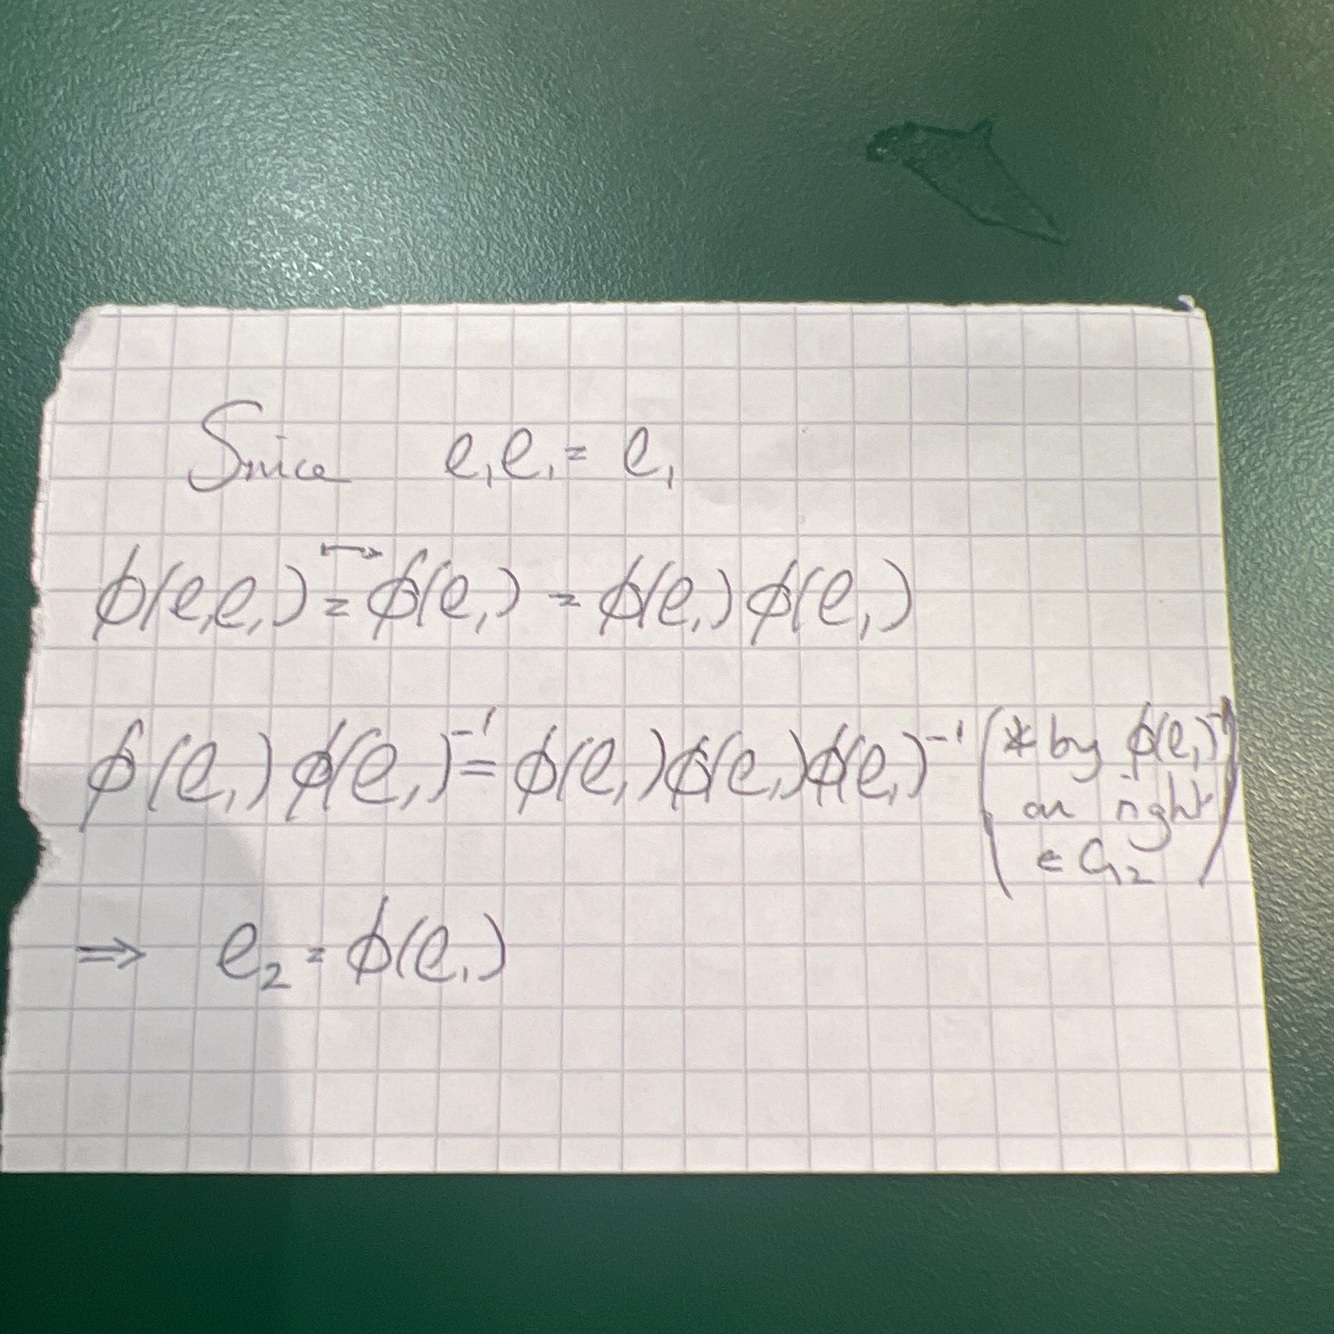 Since e₁e₁ = e₁
ϕ(e₁e₁) ↦ = ϕ(e₁) = ϕ(e₁)ϕ(e₁)
ϕ(e₁)ϕ(e₁)⁻¹ = ϕ(e₁)ϕ(e₁)ϕ(e₁)⁻¹ (* by ϕ(e₁)⁻¹
on right
∈ G₂)
⇒ e₂ = ϕ(e₁)